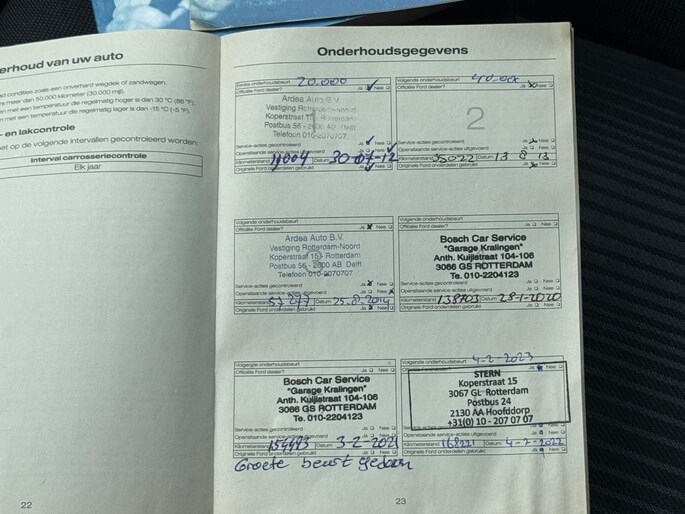 erhoud van uw auto
condities zoals een onverhard wegdek of zandwegen.
meer dan 50.000 kilometer (30.000 mijl).
met een temperatuur die regelmatig hoger is dan 30 °C (86 °F).
met een temperatuur die regelmatig lager is dan -15 °C (-5 °F).
- en lakcontrole
et op de volgende intervallen gecontroleerd worden:
Interval carrosseriecontrole
Elk jaar
22
Onderhoudsgegevens
Eerste onderhoudsbeurt 20.000
Officiële Ford dealer? Ja Nee
Ardea Auto B.V.
Vestiging Rotterdam-Noord
Koperstraat 15 Rotterdam
Postbus 56 - 2600 AB Delft
Telefoon 010-2070707
Service-acties gecontroleerd Ja Nee
Openstaande service-acties uitgevoerd Ja Nee
Kilometerstand Datum 30-07-12
Originele Ford onderdelen gebruikt Ja Nee
Volgende onderhoudsbeurt 40.000
Officiële Ford dealer? Ja Nee
2
Service-acties gecontroleerd Ja Nee
Openstaande service-acties uitgevoerd Ja Nee
Kilometerstand 35022 Datum 13 8 13
Originele Ford onderdelen gebruikt Ja Nee
Volgende onderhoudsbeurt
Officiële Ford dealer? Ja Nee
Ardea Auto B.V.
Vestiging Rotterdam-Noord
Koperstraat 15 - Rotterdam
Postbus 56 - 2600 AB Delft
Telefoon 010-2070707
Service-acties gecontroleerd Ja Nee
Openstaande service-acties uitgevoerd Ja Nee
Kilometerstand Datum 25-8-2014
Originele Ford onderdelen gebruikt Ja Nee
Volgende onderhoudsbeurt
Officiële Ford dealer? Ja Nee
Bosch Car Service
"Garage Kralingen"
Anth. Kuijlstraat 104-106
3066 GS ROTTERDAM
Te. 010-2204123
Service-acties gecontroleerd Ja Nee
Openstaande service-acties uitgevoerd Ja Nee
Kilometerstand 138703 Datum 28-1-2020
Originele Ford onderdelen gebruikt Ja Nee
Volgende onderhoudsbeurt
Officiële Ford dealer? Ja Nee
Bosch Car Service
"Garage Kralingen"
Anth. Kuijlstraat 104-106
3066 GS ROTTERDAM
Te. 010-2204123
Service-acties gecontroleerd Ja Nee
Openstaande service-acties uitgevoerd Ja Nee
Kilometerstand Datum 3-2-2021
Originele Ford onderdelen gebruikt Ja Nee
Groote beurt gedaan
Volgende onderhoudsbeurt 4-2-2023
Ja Nee
STERN
Koperstraat 15
3067 GL Rotterdam
Postbus 24
2130 AA Hoofddorp
+31(0) 10 - 207 07 07
Openstaande service-acties uitgevoerd Ja Nee
Kilometerstand 168221 Datum 4-2-2022
Originele Ford onderdelen gebruikt Ja Nee
23